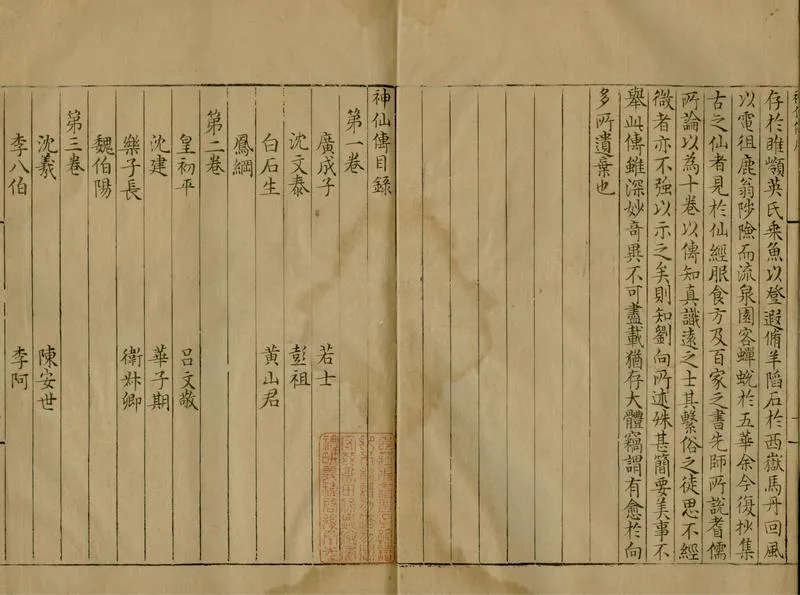 存於睢顙英氏乘魚以登遐脩羊陷石於西嶽馬丹回風
以電徂鹿翁陟險而流泉園客蟬蛻於五華余今復抄集
古之仙者見於仙經服食方及百家之書先師所說耆儒
所論以為十卷以傳知真識遠之士其繫俗之徒思不經
微者亦不強以示之矣則知劉向所述殊甚簡要美事不
舉此傳雖深妙奇異不可盡載猶存大體竊謂有愈於向
多所遺棄也
神仙傳目錄
第一卷
廣成子 若士
沈文泰 彭祖
白石生 黃山君
鳳綱
第二卷
皇初平 呂文敬
沈建 華子期
樂子長 衛叔卿
魏伯陽
第三卷
沈羲 陳安世
李八伯 李阿